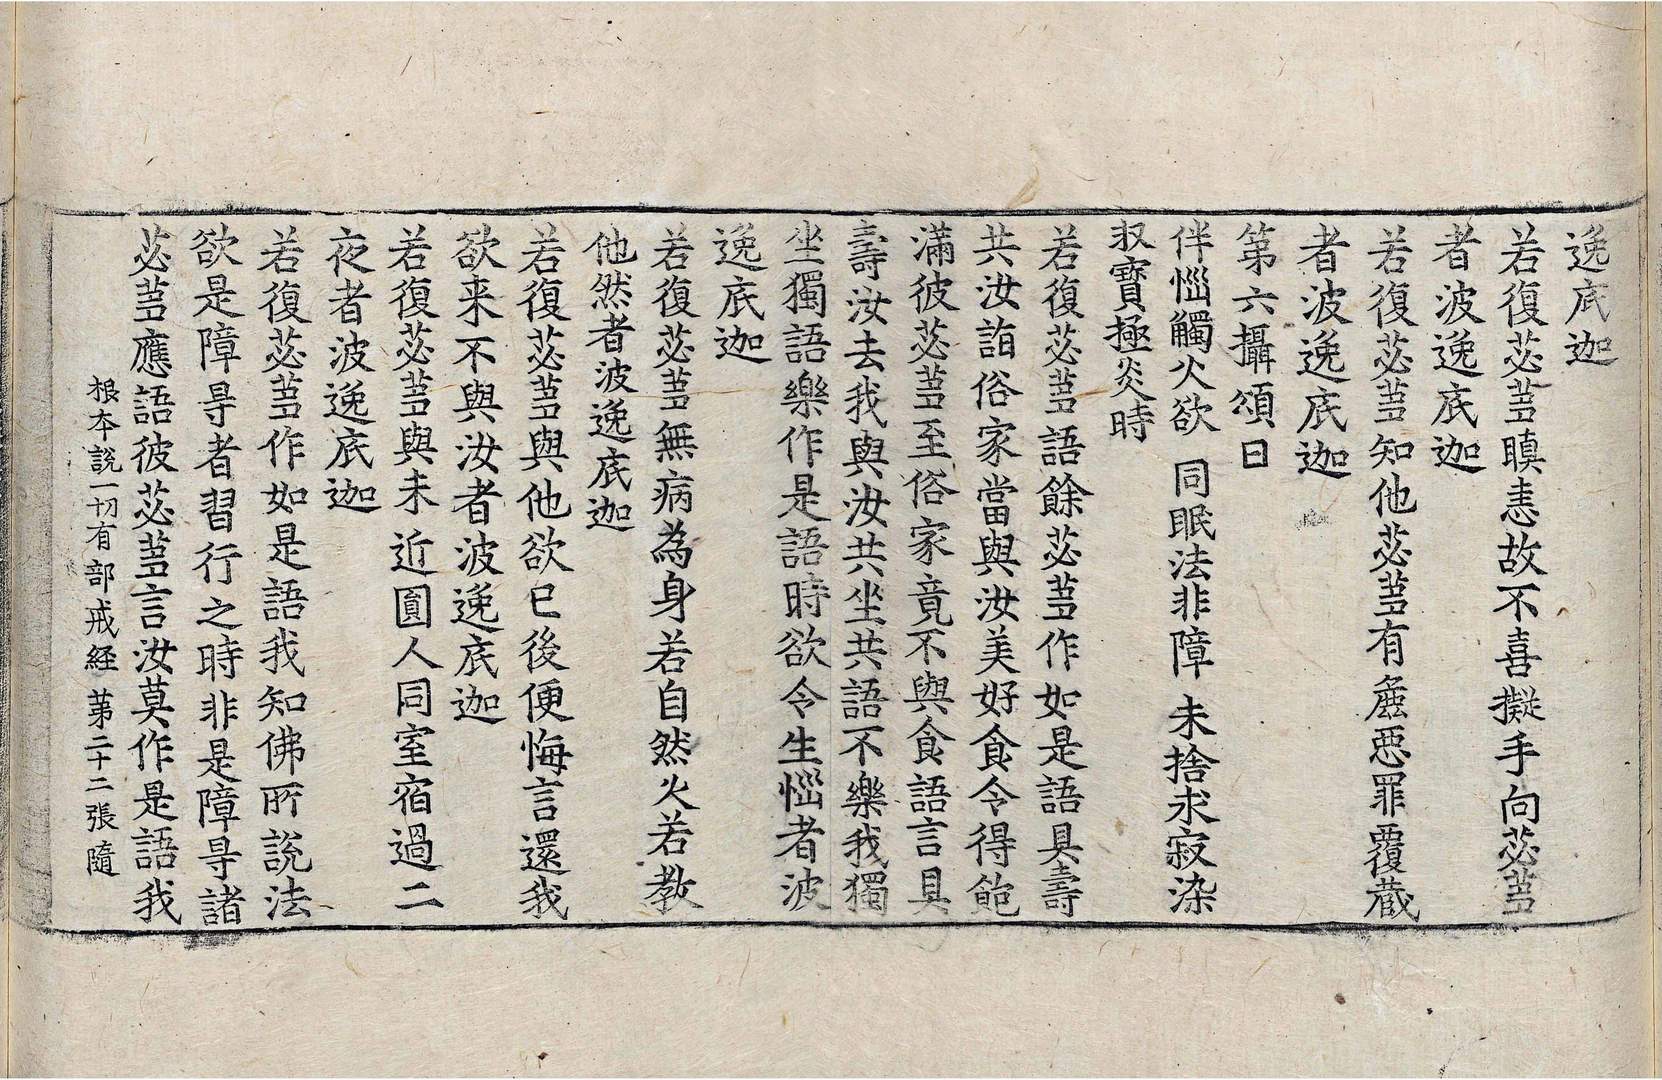 逸底迦
若復苾蒭瞋恚故不喜擬手向苾蒭
者波逸底迦
若復苾蒭知他苾蒭有麁惡罪覆藏
者波逸底迦
第六攝頌曰
伴惱觸火欲　同眠法非障　未捨求寂染
収寶極炎時
若復苾蒭語餘苾蒭作如是語具壽
共汝詣俗家當與汝美好食令得飽
滿彼苾蒭至俗家竟不與食語言具
壽汝去我與汝共坐共語不樂我獨
坐獨語樂作是語時欲令生惱者波
逸底迦
若復苾蒭無病為身若自然火若教
他然者波逸底迦
若復苾蒭與他欲已後便悔言還我
欲来不與汝者波逸底迦
若復苾蒭與未近圓人同室宿過二
夜者波逸底迦
若復苾蒭作如是語我知佛所說法
欲是障㝵者習行之時非是障㝵諸
苾蒭應語彼苾蒭言汝莫作是語我
根本說一切有部戒経　第二十二張　隨